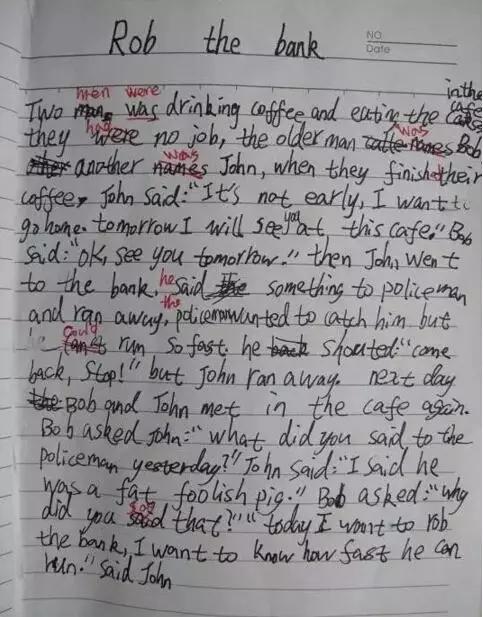 Rob the bank
NO.
Date
hren were in the cafe
Two was drinking coffee and eating the cakes
had was
they were no job, the older man names Bob
was
another names John, when they finished their
coffee, John said: "It's not early, I want to
you
go home. tomorrow I will see at this cafe." Bob
said: "ok, see you tomorrow." then John went
he
to the bank, said something to policeman
the
and ran away, policeman wanted to catch him but
could
he run so fast. he back shouted: "come
back, stop!" but John ran away. next day
the Bob and John met in the cafe again.
Bob asked John: "what did you said to the
policeman yesterday?" John said: "I said he
was a fat foolish pig." Bob asked: "why
say
did you said that?" "today I want to rob
the bank, I want to know how fast he can
run." said John